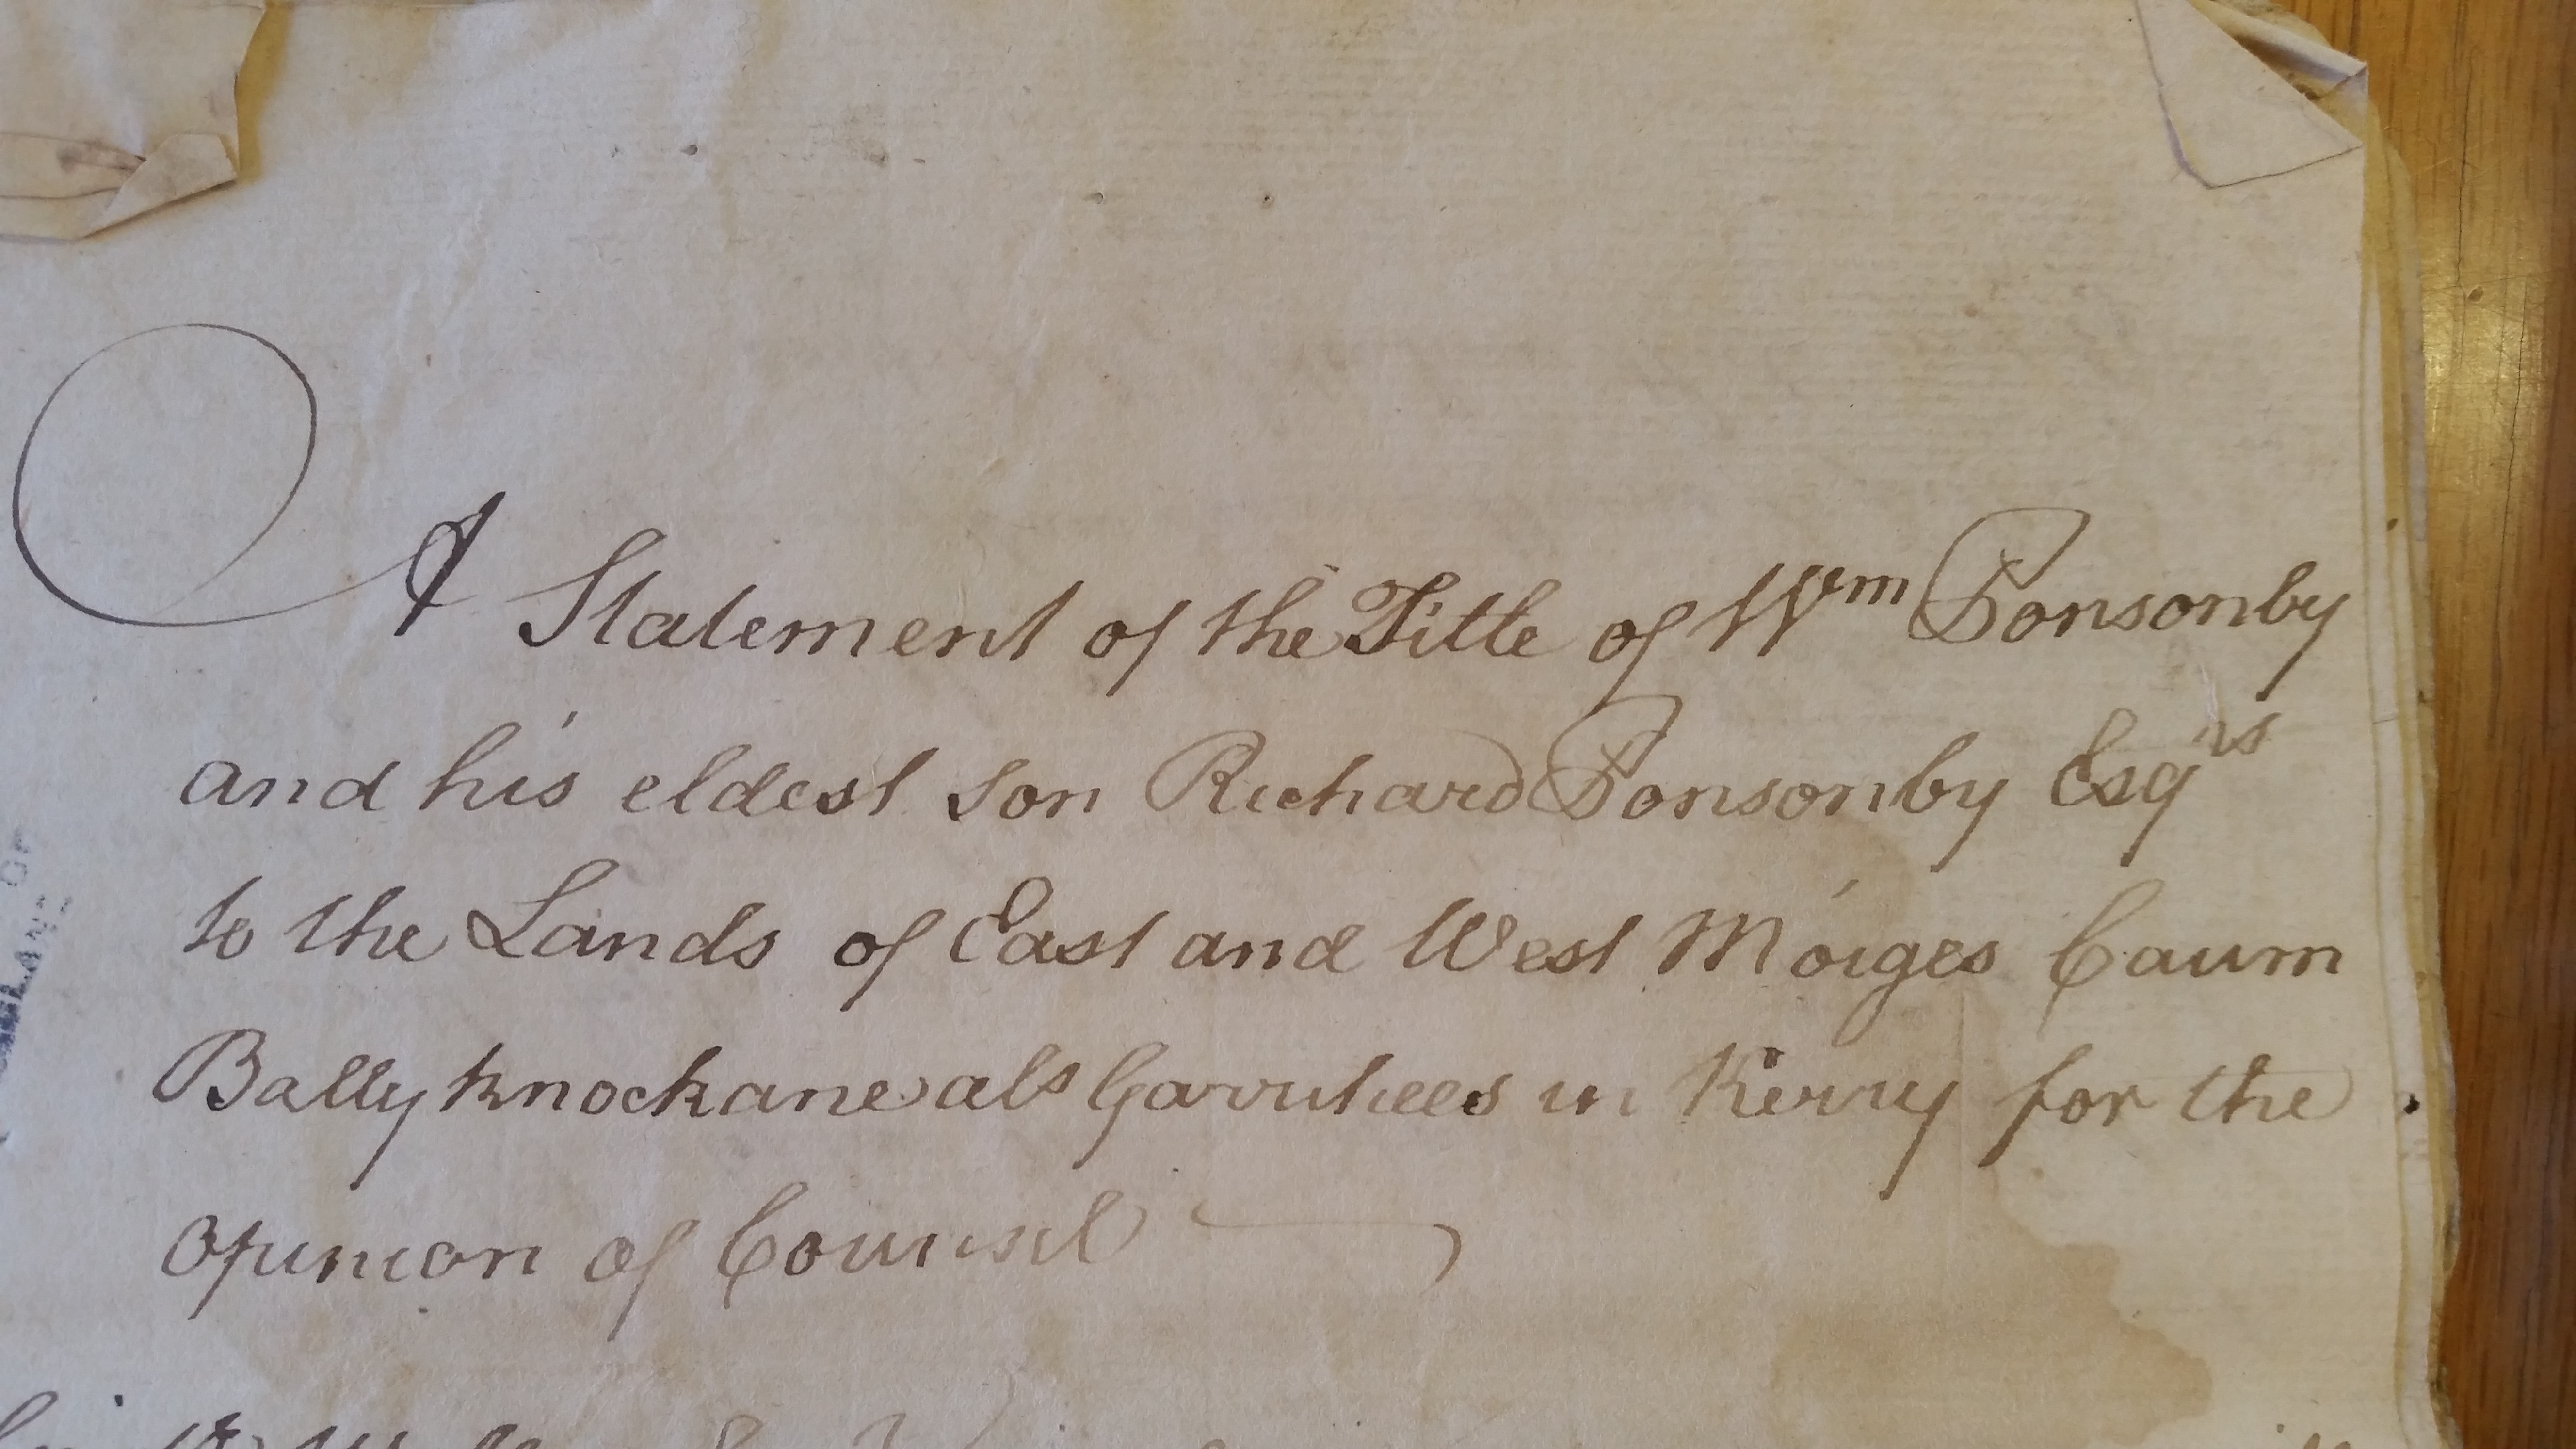 A Statement of the Title of Wm Ponsonby
and his eldest son Richard Ponsonby Esqrs
to the Lands of East and West Moiges Caum
Ballyknockane als in Kerry for the
Opinion of Counsel